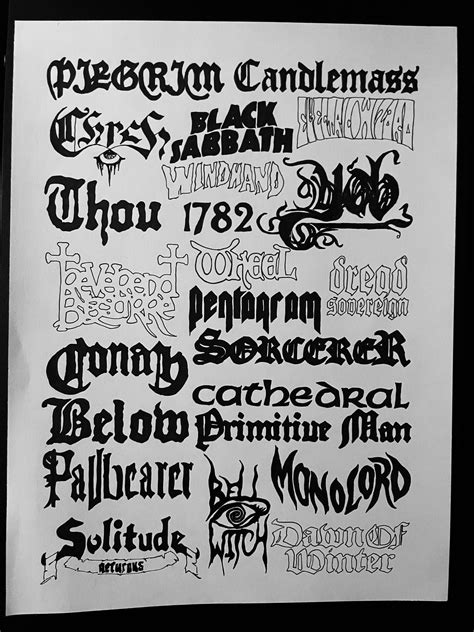 PILGRIM Candlemass
Chrch
BLACK
SABBATH
WINDHAND
Thou
1782
Yob
Reverend
Bizarre
WHEEL
dread
sovereign
pentagram
Conan
SORCERER
cathedral
Below
Primitive Man
Pallbearer
BELL
WITCH
MONOLORD
Solitude
aeturnus
Dawn Of
Winter